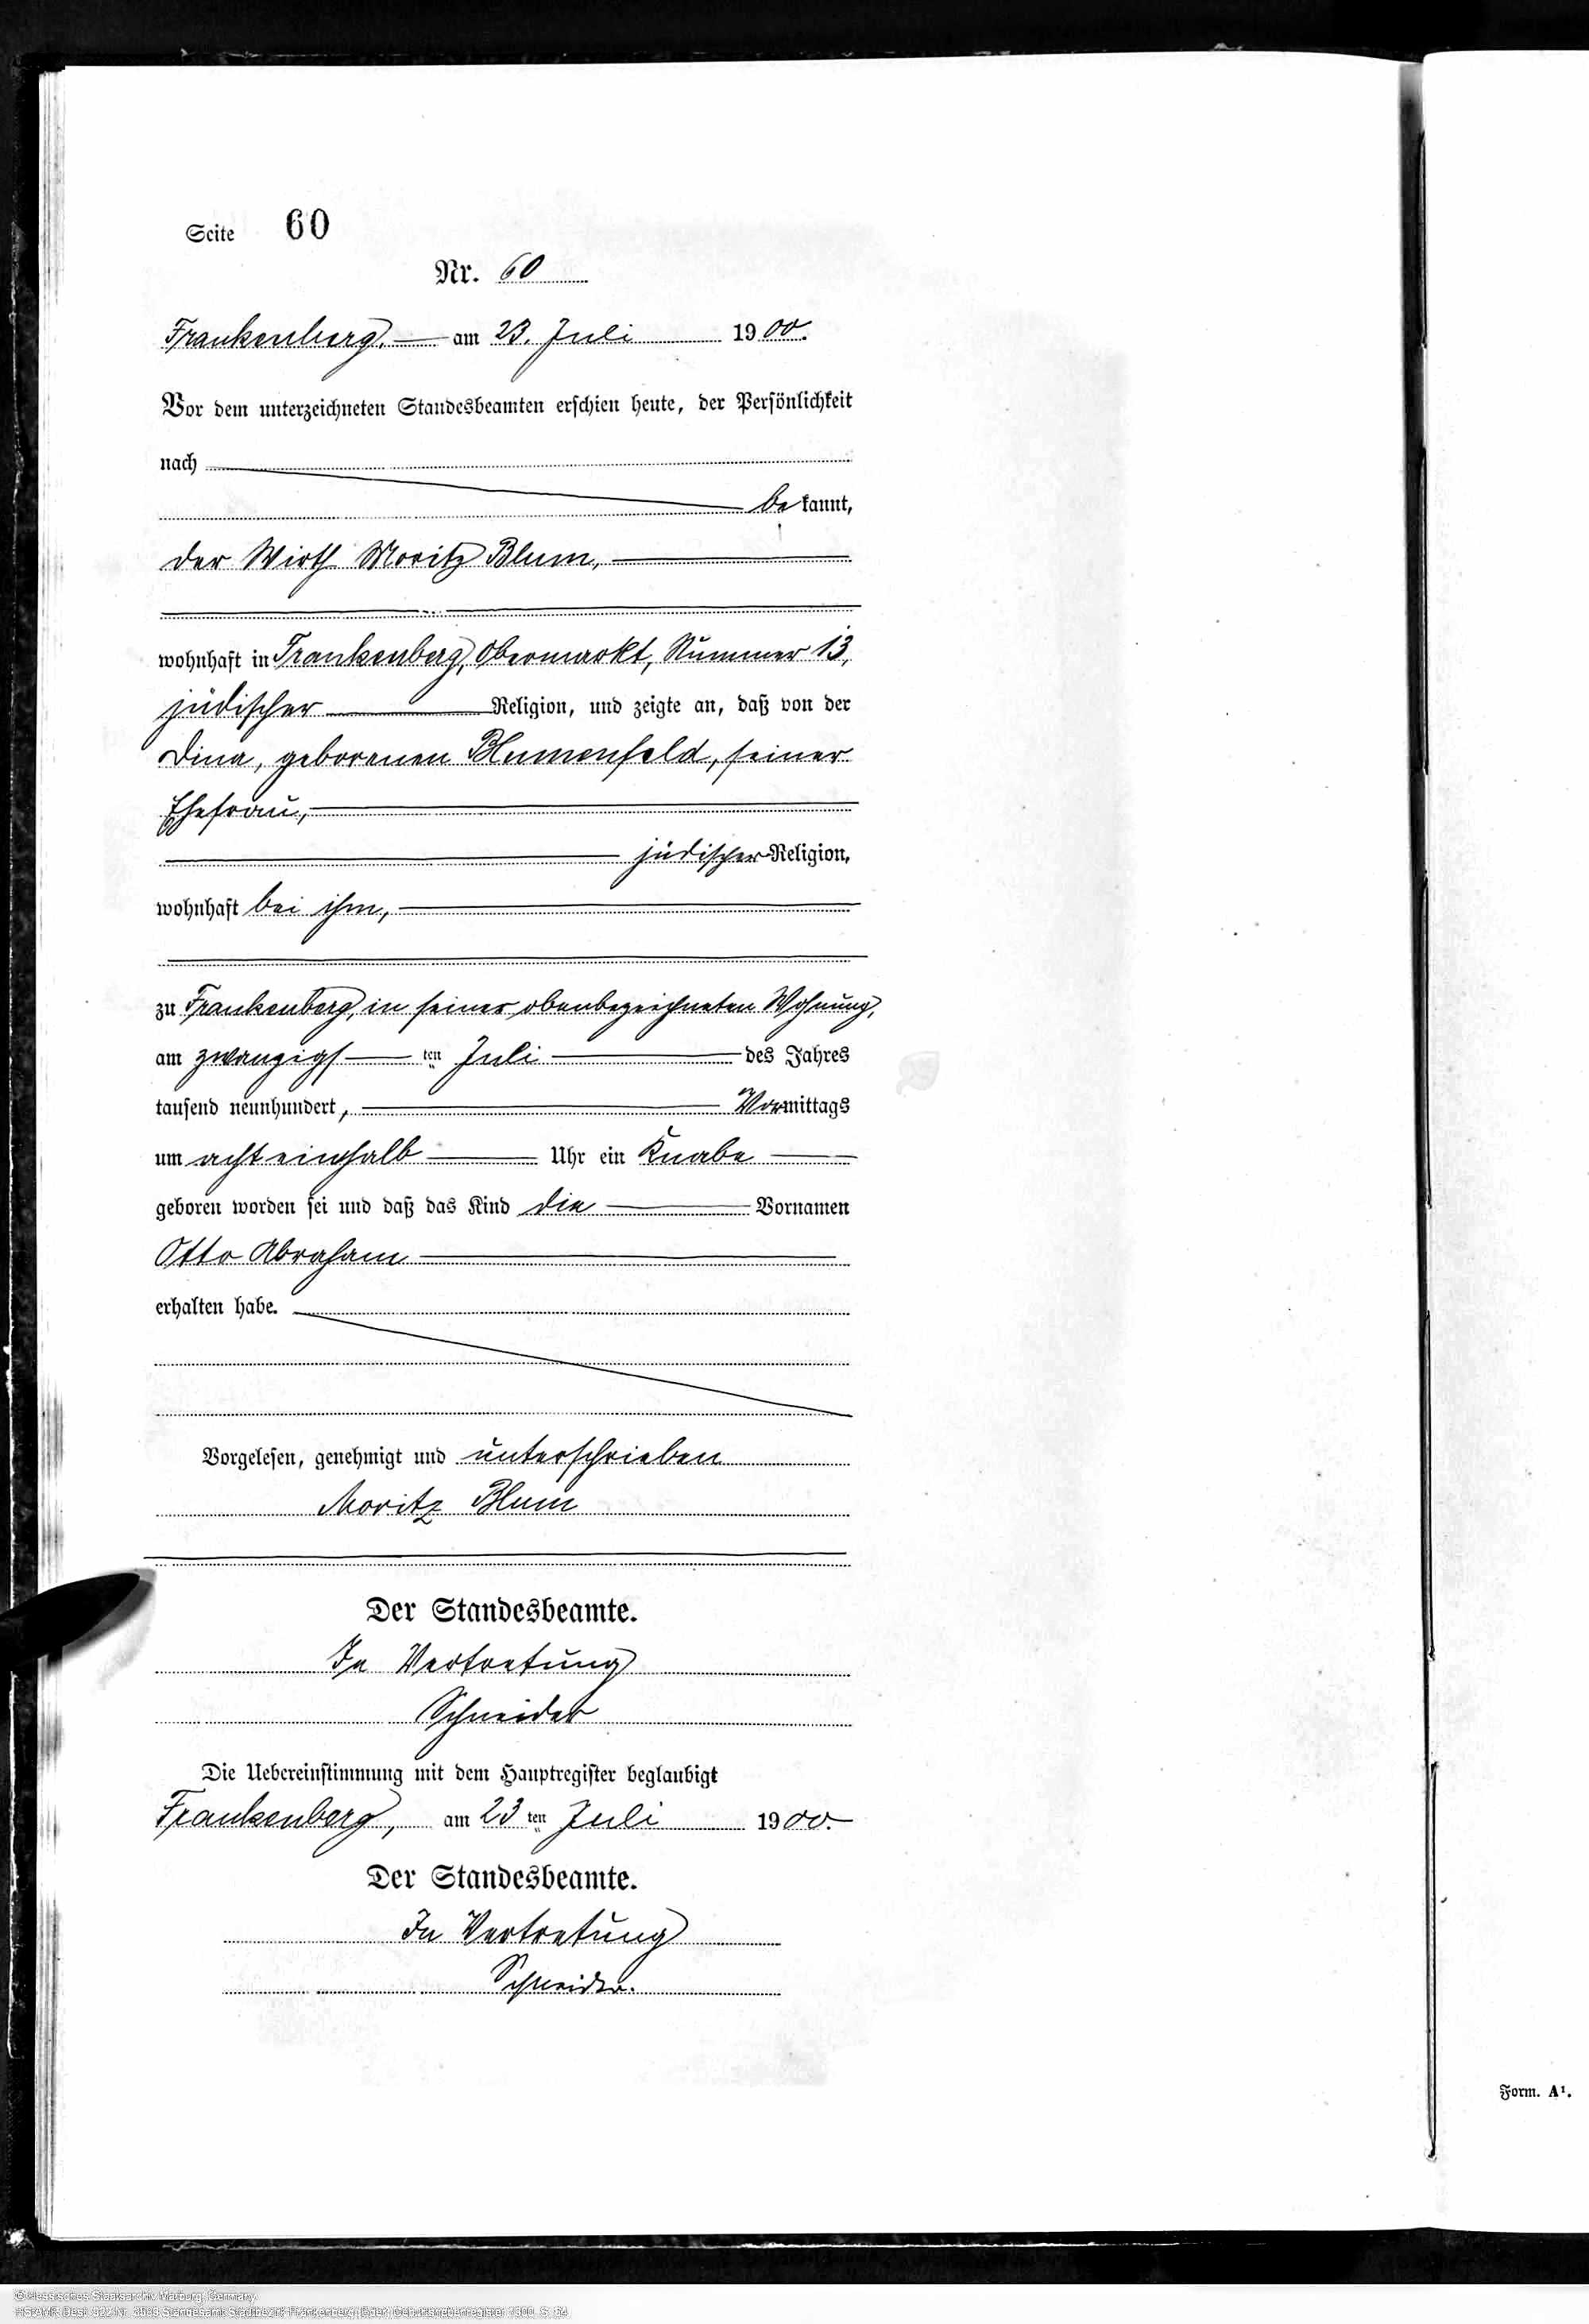 Seite 60
Nr. 60
Frankenberg, am 23. Juli 1900.
Vor dem unterzeichneten Standesbeamten erschien heute, der Persönlichkeit
nach
bekannt,
der Wirth Moritz Blum,
wohnhaft in Frankenberg, Obermarkt, Nummer 13,
jüdischer Religion, und zeigte an, daß von der
Dina, geborenen Blumenfeld, seiner
Ehefrau,
jüdischer Religion,
wohnhaft bei ihm,
zu Frankenberg, in seiner obenbezeichneten Wohnung,
am zwanzigsten Juli des Jahres
tausend neunhundert, Vormittags
um acht einhalb Uhr ein Knabe
geboren worden sei und daß das Kind die Vornamen
Otto Abraham
erhalten habe.
Vorgelesen, genehmigt und unterschrieben
Moritz Blum
Der Standesbeamte.
In Vertretung
Schneider
Die Uebereinstimmung mit dem Hauptregister beglaubigt
Frankenberg, am 23ten Juli 1900.
Der Standesbeamte.
In Vertretung
Schneider.
Form. A1.
© Hessisches Staatsarchiv Marburg, Germany
HStAMR Best. 922 Nr. Standesamt Frankenberg Geburtsnebenregister 1900, S.